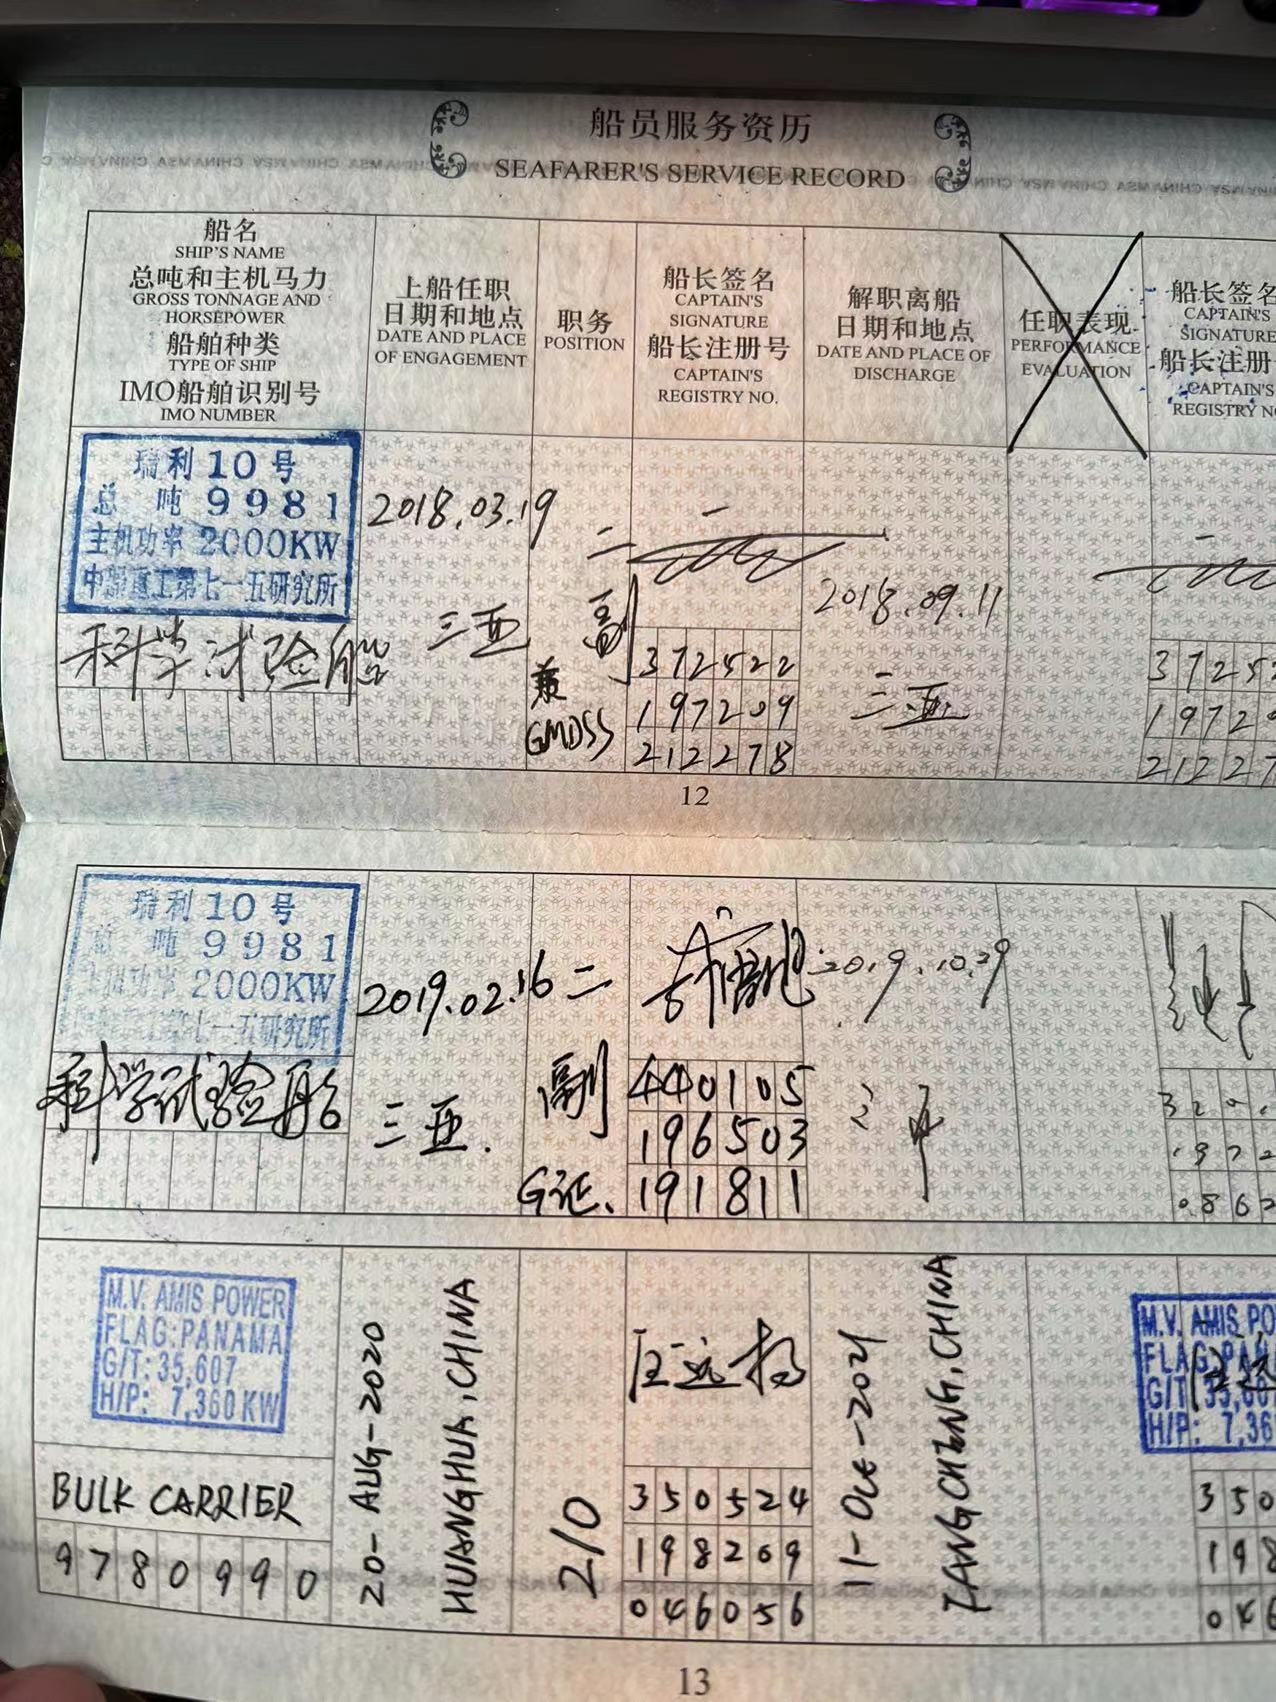 船员服务资历
SEAFARER'S SERVICE RECORD
船名
SHIP'S NAME
总吨和主机马力
GROSS TONNAGE AND
HORSEPOWER
船舶种类
TYPE OF SHIP
IMO船舶识别号
IMO NUMBER
上船任职
日期和地点
DATE AND PLACE
OF ENGAGEMENT
职务
POSITION
船长签名
CAPTAIN'S
SIGNATURE
船长注册号
CAPTAIN'S
REGISTRY NO.
解职离船
日期和地点
DATE AND PLACE OF
DISCHARGE
任职表现
PERFORMANCE
EVALUATION
船长签名
CAPTAIN'S
SIGNATURE
船长注册
CAPTAIN'S
REGISTRY
瑞利10号
总 吨 9981
主机功率 2000KW
中船重工第七一五研究所
科学试验船
2018.03.19
三亚
二
副
兼
GMDSS
372522
197209
212278
2018.09.11
三亚
3725
19720
2122
12
瑞利10号
总 吨 9981
主机功率 2000KW
七一五研究所
科学试验船
2019.02.16
三亚.
二
副
G证.
440105
196503
191811
2019.10.29
三亚
M.V. AMIS POWER
FLAG:PANAMA
G/T: 35,607
H/P: 7,360 KW
BULK CARRIER
9780990
20-AUG-2020
HUANGHUA, CHINA
2/0
350524
198209
046056
11-Oct-2021
FANGCHENG, CHINA
M.V. AMIS PO
FLAG:PAN
G/T: 35,60
H/P: 7,36
350
198
046
13